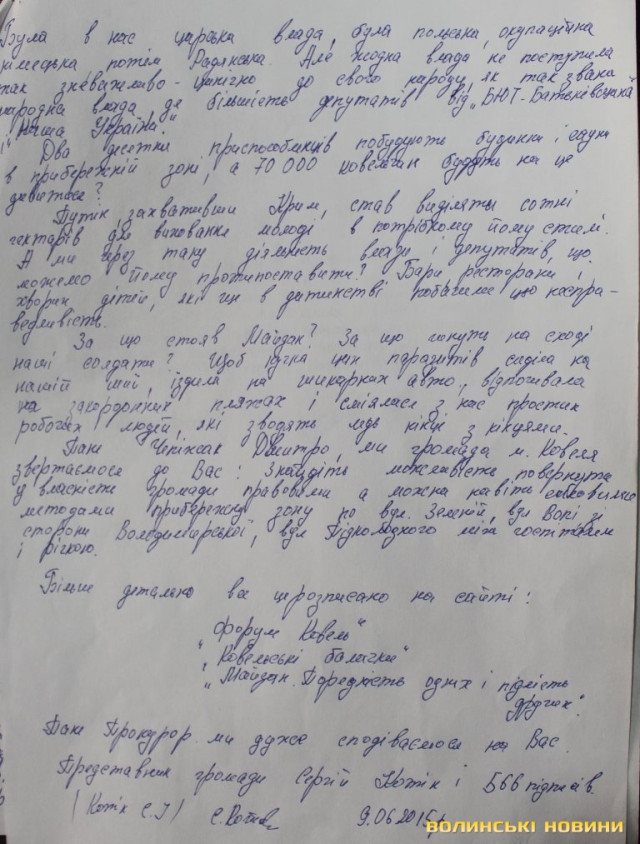 Була в нас царська влада, була польська, окупаційна
німецька потім Радянська. Але жодна влада не поступила
так зневажливо - цинічно до свого народу, як так звана
народна влада де більшість депутатів від „БЮТ-Батьківщина"
і „Наша Україна".
Два десятки приспособинців побудують будинки і сауни
в прибережній зоні, а 70 000 ковельчан будуть на це
дивитися?
Путін, захвативши Крим, став виділяти сотні
гектарів для виховання молоді в потрібному йому стилі.
А ми через таку діяльність влади і депутатів, що
можемо йому протипоставити? Бари ресторани і
хворих дітей, які ще в дитинстві побачили цю неспра-
ведливість.
За що стояв Майдан? За що гинуть на сході
наші солдати? Щоб купа цих паразитів сиділа на
нашій шиї, їздила на шикарних авто, відпочивала
на закордонних пляжах і сміялася з нас простих
робочих людей, які зводять ледь кінці з кінцями.
Пане Чепіжсак Дмитро, ми громада м. Ковеля
звертаємося до Вас: Знайдіть можливість повернути
у власність громади правовими а можна навіть силовими
методами прибережну зону по вул. Зеленій, вул Волі зі
сторони Володимирської, вул Підколодного між госпіталем
і річкою.
Більше детально все це розписано на сайті:
„Форум Ковель"
„Ковельські балачки"
„Майдан. Порядність одних і підлість
других".
Пане Прокурор ми дуже сподіваємося на Вас.
Представник громади Сергій Котік і 566 підписів.
(Котік С.І) 9.06.2015р
ВОЛИНСЬКІ НОВИНИ